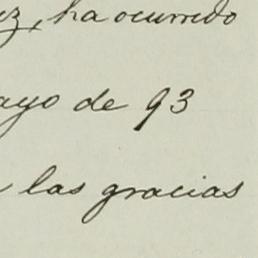 ez, ha ocurrido
ayo de 93
las gracias